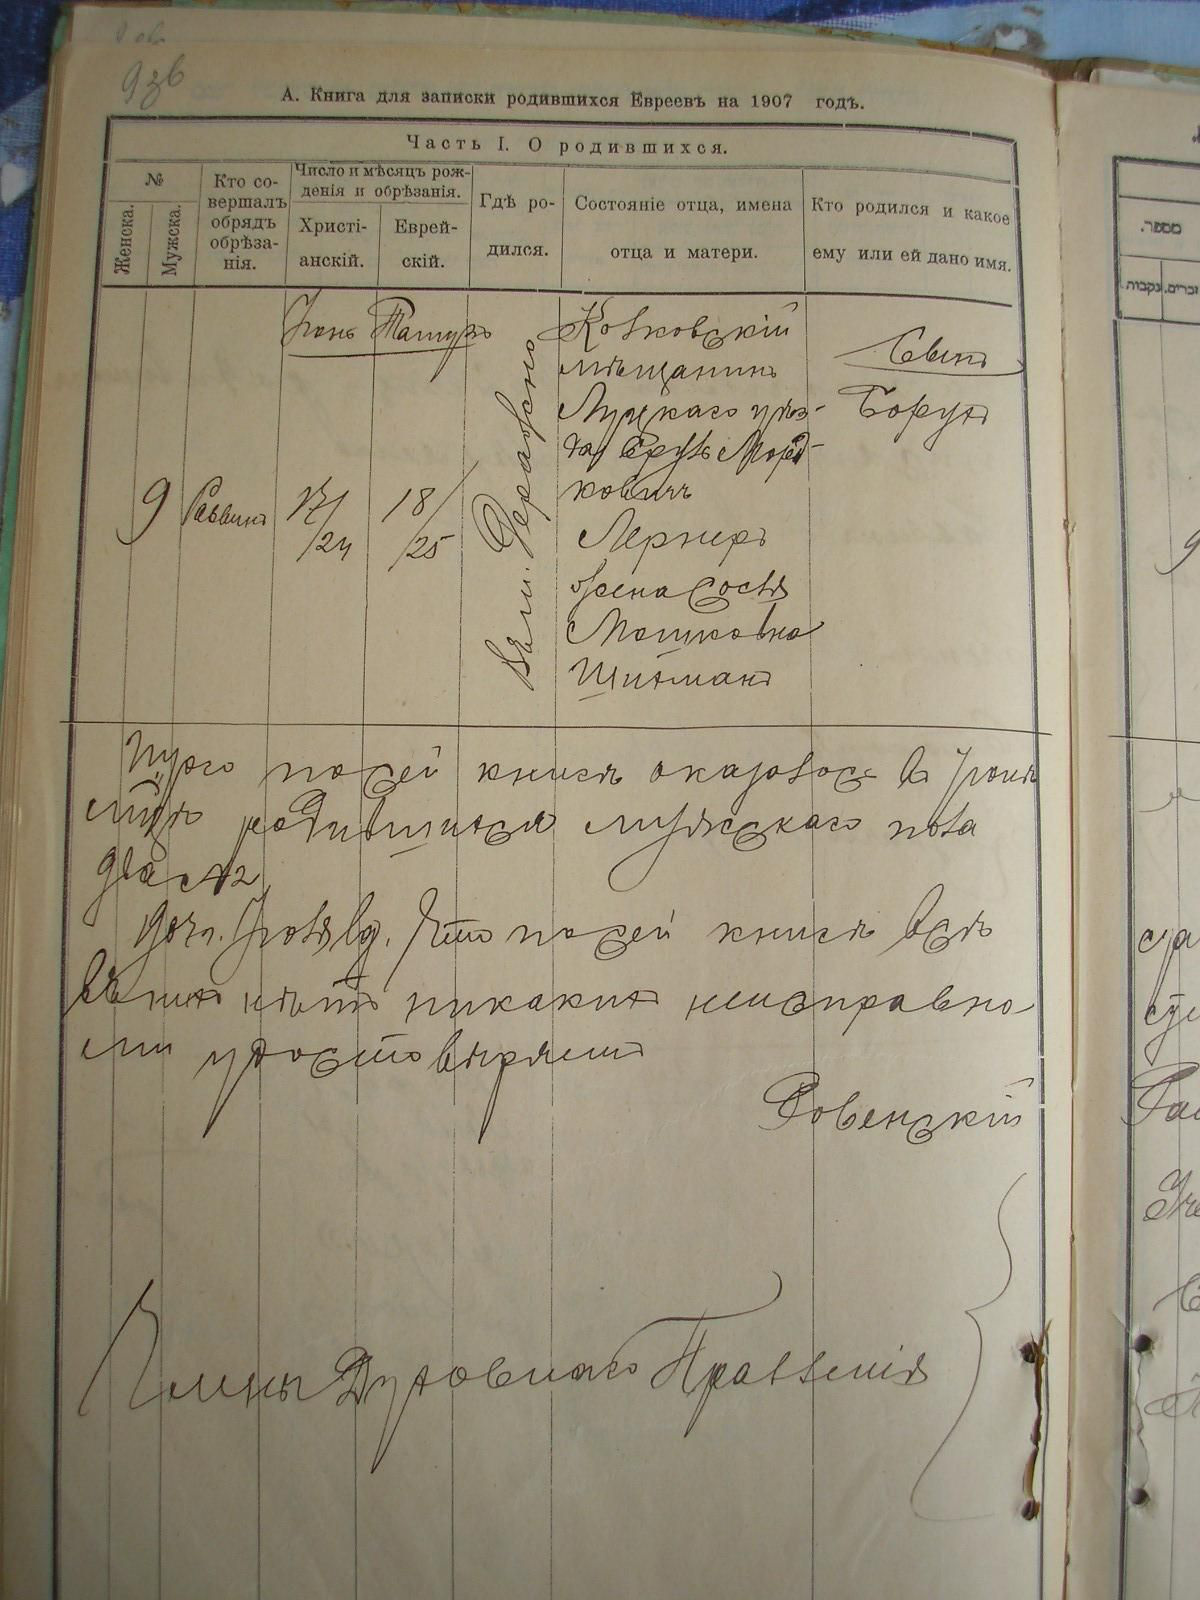 936
А. Книга для записки родившихся Евреевъ на 1907 годъ.
Часть I. О родившихся.
№
Женска.
Мужска.
Кто со-
вершалъ
обрядъ
обрѣза-
нія.
Число и мѣсяцъ рож-
денія и обрѣзанія.
Христі-
анскій.
Еврей-
скій.
Гдѣ ро-
дился.
Состояніе отца, имена
отца и матери.
Кто родился и какое
ему или ей дано имя.
Іюнь Тамузъ
9
Раввинъ
17/
/24
18/
/25
Въ м.
Колковскій
мѣщанинъ
Луцкаго уѣз-
да Сруль Морд-
ковичъ
Лернеръ
жена Сося
Мошковна
Шихманъ
Сынъ
Борухъ
по сей книгѣ оказалось въ Іюнѣ
м-цѣ родившихся мужскаго пола
два №2
Іюля Что по сей книгѣ
нѣтъ никакихъ неисправно-
удостовѣряемъ
Ровенскій
Члены Духовнаго Правленія
מספר.
זכרים.
נקבות
9